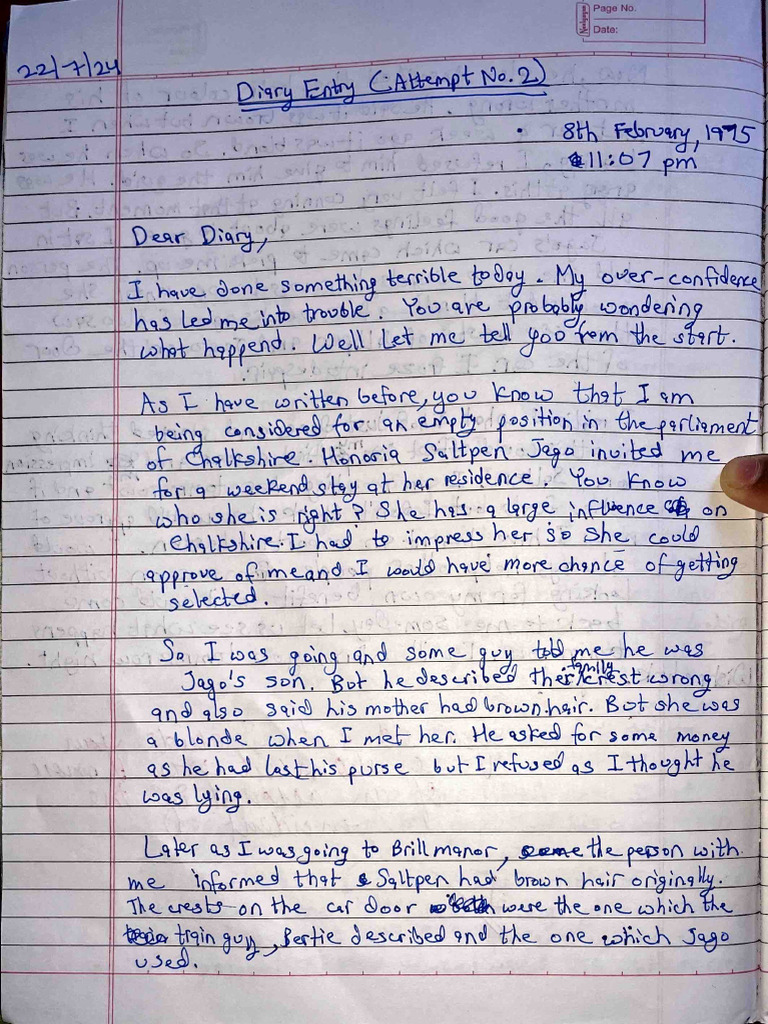 Page No.
Date:
Navneet
22/7/24
Diary Entry (Attempt No. 2)
8th February, 1975
11:07 pm
Dear Diary,
I have done something terrible today. My over-confidence
has led me into trouble. You are probably wondering
what happend. Well let me tell you from the start.
As I have written before, you know that I am
being considered for an empty position in the parliament
of Chalkshire. Honoria Saltpen Jago invited me
for a weekend stay at her residence. You know
who she is right? She has a large influence on
Chalkshire. I had to impress her so she could
approve of me and I would have more chance of getting
selected.
So I was going and some guy told me he was
Jago's son. But he described their family crest wrong
and also said his mother had brown hair. But she was
a blonde when I met her. He asked for some money
as he had lost his purse but I refused as I thought he
was lying.
Later as I was going to Brill manor, the person with
me informed that Saltpen had brown hair originally.
The crests on the car door were the one which the
train guy, Bertie described and the one which Jago
used.